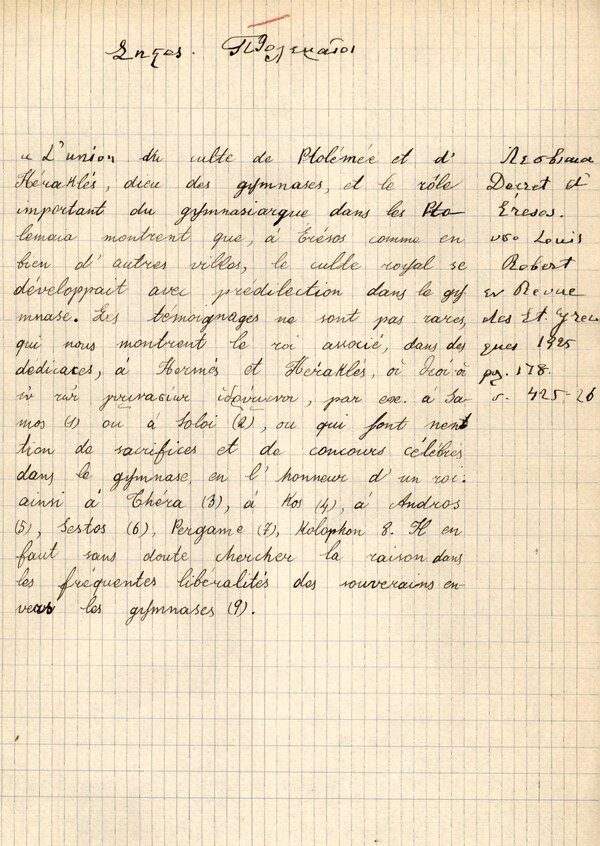 Σηττος. Πτολεμαῖοι
« L'union du culte de Ptolémée et d'
Héraklès, dieu des gymnases, et le rôle
important du gymnasiarque dans les Pto-
lemaia montrent que, à Erésos comme en
bien d'autres villes, le culte royal se
développait avec prédilection dans le gy
mnase. Les témoignages ne sont pas rares,
qui nous montrent le roi associé, dans des
dédicaces, à Hermès et Héraklès,
par ex. à Sa-
mos (1) ou à Soloi (2), ou qui font men
tion de sacrifices et de concours célébrés
dans le gymnase, en l'honneur d'un roi:
ainsi à Théra (3), à Kos (4), à Andros
(5), Sestos (6), Pergame (7), Kolophon 8. Il en
faut sans doute chercher la raison dans
les fréquentes libéralités des souverains en-
vers les gymnases (9).
Λεσβιακα
Decret d'
Erésos.
υπο Louis
Robert
εν Revue
des Et. Grec
ques 1925
178.
σ. 425-26